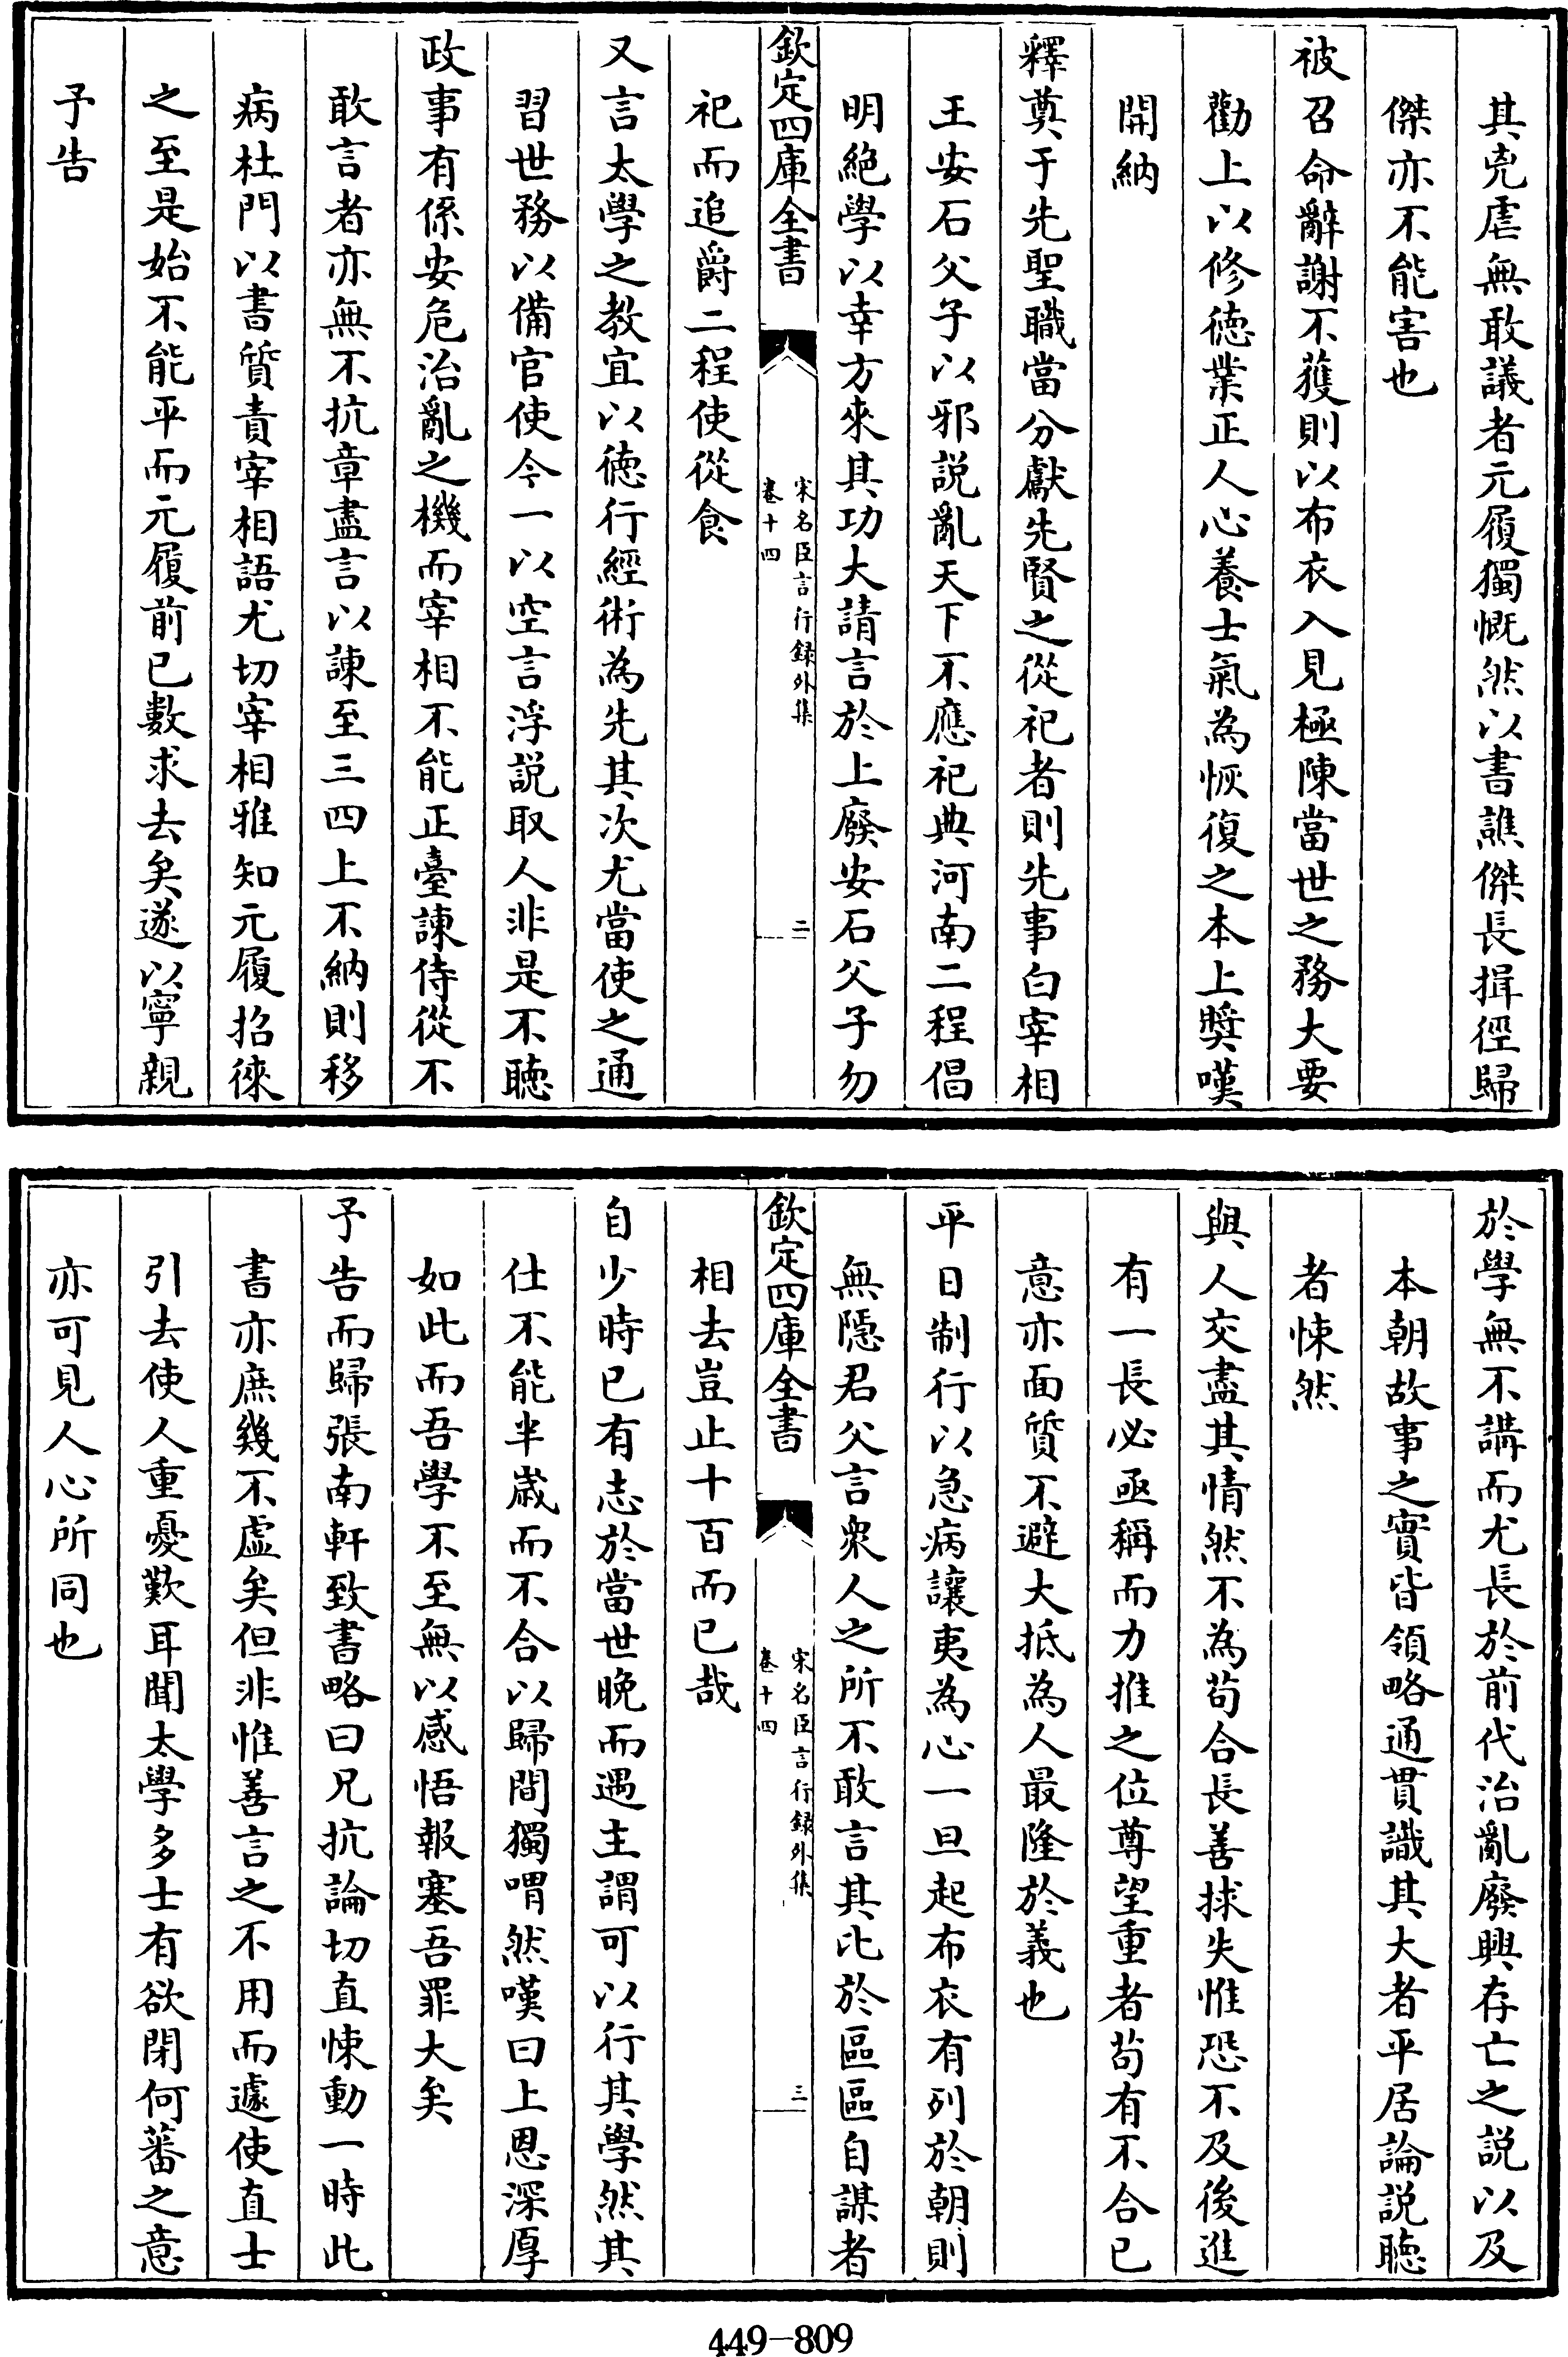 其兇虐無敢議者元履獨慨然以書譙傑長揖徑歸
傑亦不能害也
被召命辭謝不獲則以布衣入見極陳當世之務大要
勸上以修徳業正人心養士氣為恢復之本上奬嘆
開納
釋奠于先聖職當分獻先賢之從祀者則先事白宰相
王安石父子以邪説亂天下不應祀典河南二程倡
明絶學以幸方來其功大請言於上廢安石父子勿
欽定四庫全書
宋名臣言行録外集
卷十四
二
祀而追爵二程使從食
又言太學之教宜以徳行經術為先其次尤當使之通
習世務以備官使今一以空言浮説取人非是不聴
政事有係安危治亂之機而宰相不能正臺諫侍從不
敢言者亦無不抗章盡言以諫至三四上不納則移
病杜門以書質責宰相語尤切宰相雅知元履招徠
之至是始不能平而元履前已數求去矣遂以寧親
予告
於學無不講而尤長於前代治亂廢興存亡之説以及
本朝故事之實皆領略通貫識其大者平居論説聴
者悚然
與人交盡其情然不為茍合長善捄失惟恐不及後進
有一長必亟稱而力推之位尊望重者茍有不合已
意亦面質不避大抵為人最隆於義也
平日制行以急病讓夷為心一旦起布衣有列於朝則
無隱君父言衆人之所不敢言其比於區區自謀者
欽定四庫全書
宋名臣言行録外集
卷十四
三
相去豈止十百而已哉
自少時已有志於當世晚而遇主謂可以行其學然其
仕不能半嵗而不合以歸間獨喟然嘆曰上恩深厚
如此而吾學不至無以感悟報塞吾罪大矣
予告而歸張南軒致書略曰兄抗論切直悚動一時此
書亦庶幾不虚矣但非惟善言之不用而遽使直士
引去使人重憂歎耳聞太學多士有欲閉何蕃之意
亦可見人心所同也
449-809